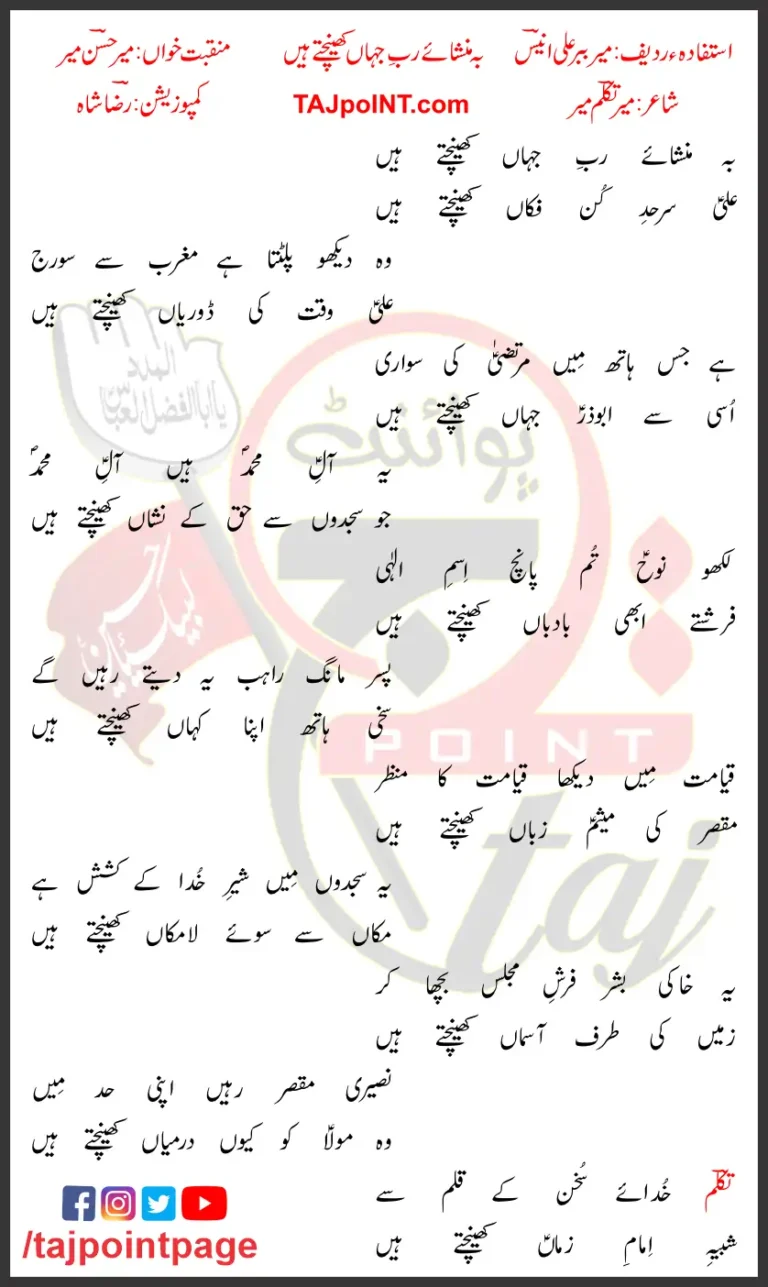 استفادہء ردیف: میر ببر علی انیسؔ    بہ منشائے ربِ جہاں کھینچتے ہیں    منقبت خواں: میر حسنؔ میر
شاعر: میر تکلمؔ میر    TAJpoINT.com    کمپوزیشن: رضاؔ شاہ
بہ منشائے ربِ جہاں کھینچتے ہیں
علیؑ سرحدِ کُن فکاں کھینچتے ہیں
وہ دیکھو پلٹتا ہے مغرب سے سورج
علیؑ وقت کی ڈوریاں کھینچتے ہیں
ہے جس ہاتھ مِیں مرتضیٰؑ کی سواری
اُسی سے ابوذرؑ جہاں کھینچتے ہیں
یہ آلِؑ محمدؐ ہیں آلِؑ محمدؐ
جو سجدوں سے حق کے نشاں کھینچتے ہیں
لکھو نوحؑ تُم پانچ اِسمِ الہٰی
فرشتے ابھی بادباں کھینچتے ہیں
پسر مانگ راہب یہ دیتے رہیں گے
سخی ہاتھ اپنا کہاں کھینچتے ہیں
قیامت مِیں دیکھا قیامت کا منظر
مقصر کی میثمؑ زباں کھینچتے ہیں
یہ سجدوں مِیں شیرِ خُدا کے کشش ہے
مکاں سے سوئے لامکاں کھینچتے ہیں
یہ خاکی بشر فرشِ مجلس بچھا کر
زمیں کی طرف آسماں کھینچتے ہیں
نصیری مقصر رہیں اپنی حد مِیں
وہ مولاؑ کو کیوں درمیاں کھینچتے ہیں
تکلمؔ خُدائے سُخن کے قلم سے
شبیہِ اِمامِ زماںؑ کھینچتے ہیں
/tajpointpage
المدد
یا ابا الفضل العباسؑ
لبیک یا حسینؑ
پوائنٹ
تاج
POINT
taj